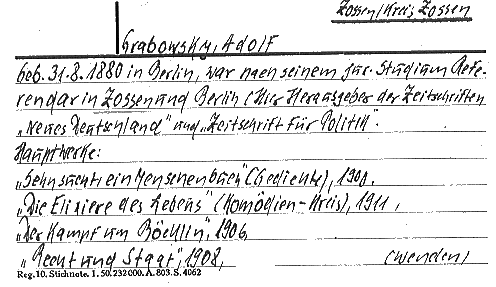 Zossen/Kreis Zossen
Grabowsky, Adolf
geb. 31.8.1880 in Berlin, war nach seinem jur. Studium Refe-
rendar in Zossen und Berlin (hier Herausgeber der Zeitschriften
„Neues Deutschland" und „Zeitschrift für Politik".
Hauptwerke:
„Sehnsucht, ein Menschenbuch" (Gedichte), 1900.
„Die Elixiere des Lebens" (Komödien-Kreis), 1911,
„Der Kampf um Böcklin", 1906,
„Recht und Staat", 1908,
(wenden)
Reg. 10. Stichnote. 1. 50. 232000. A. 803. S. 4062